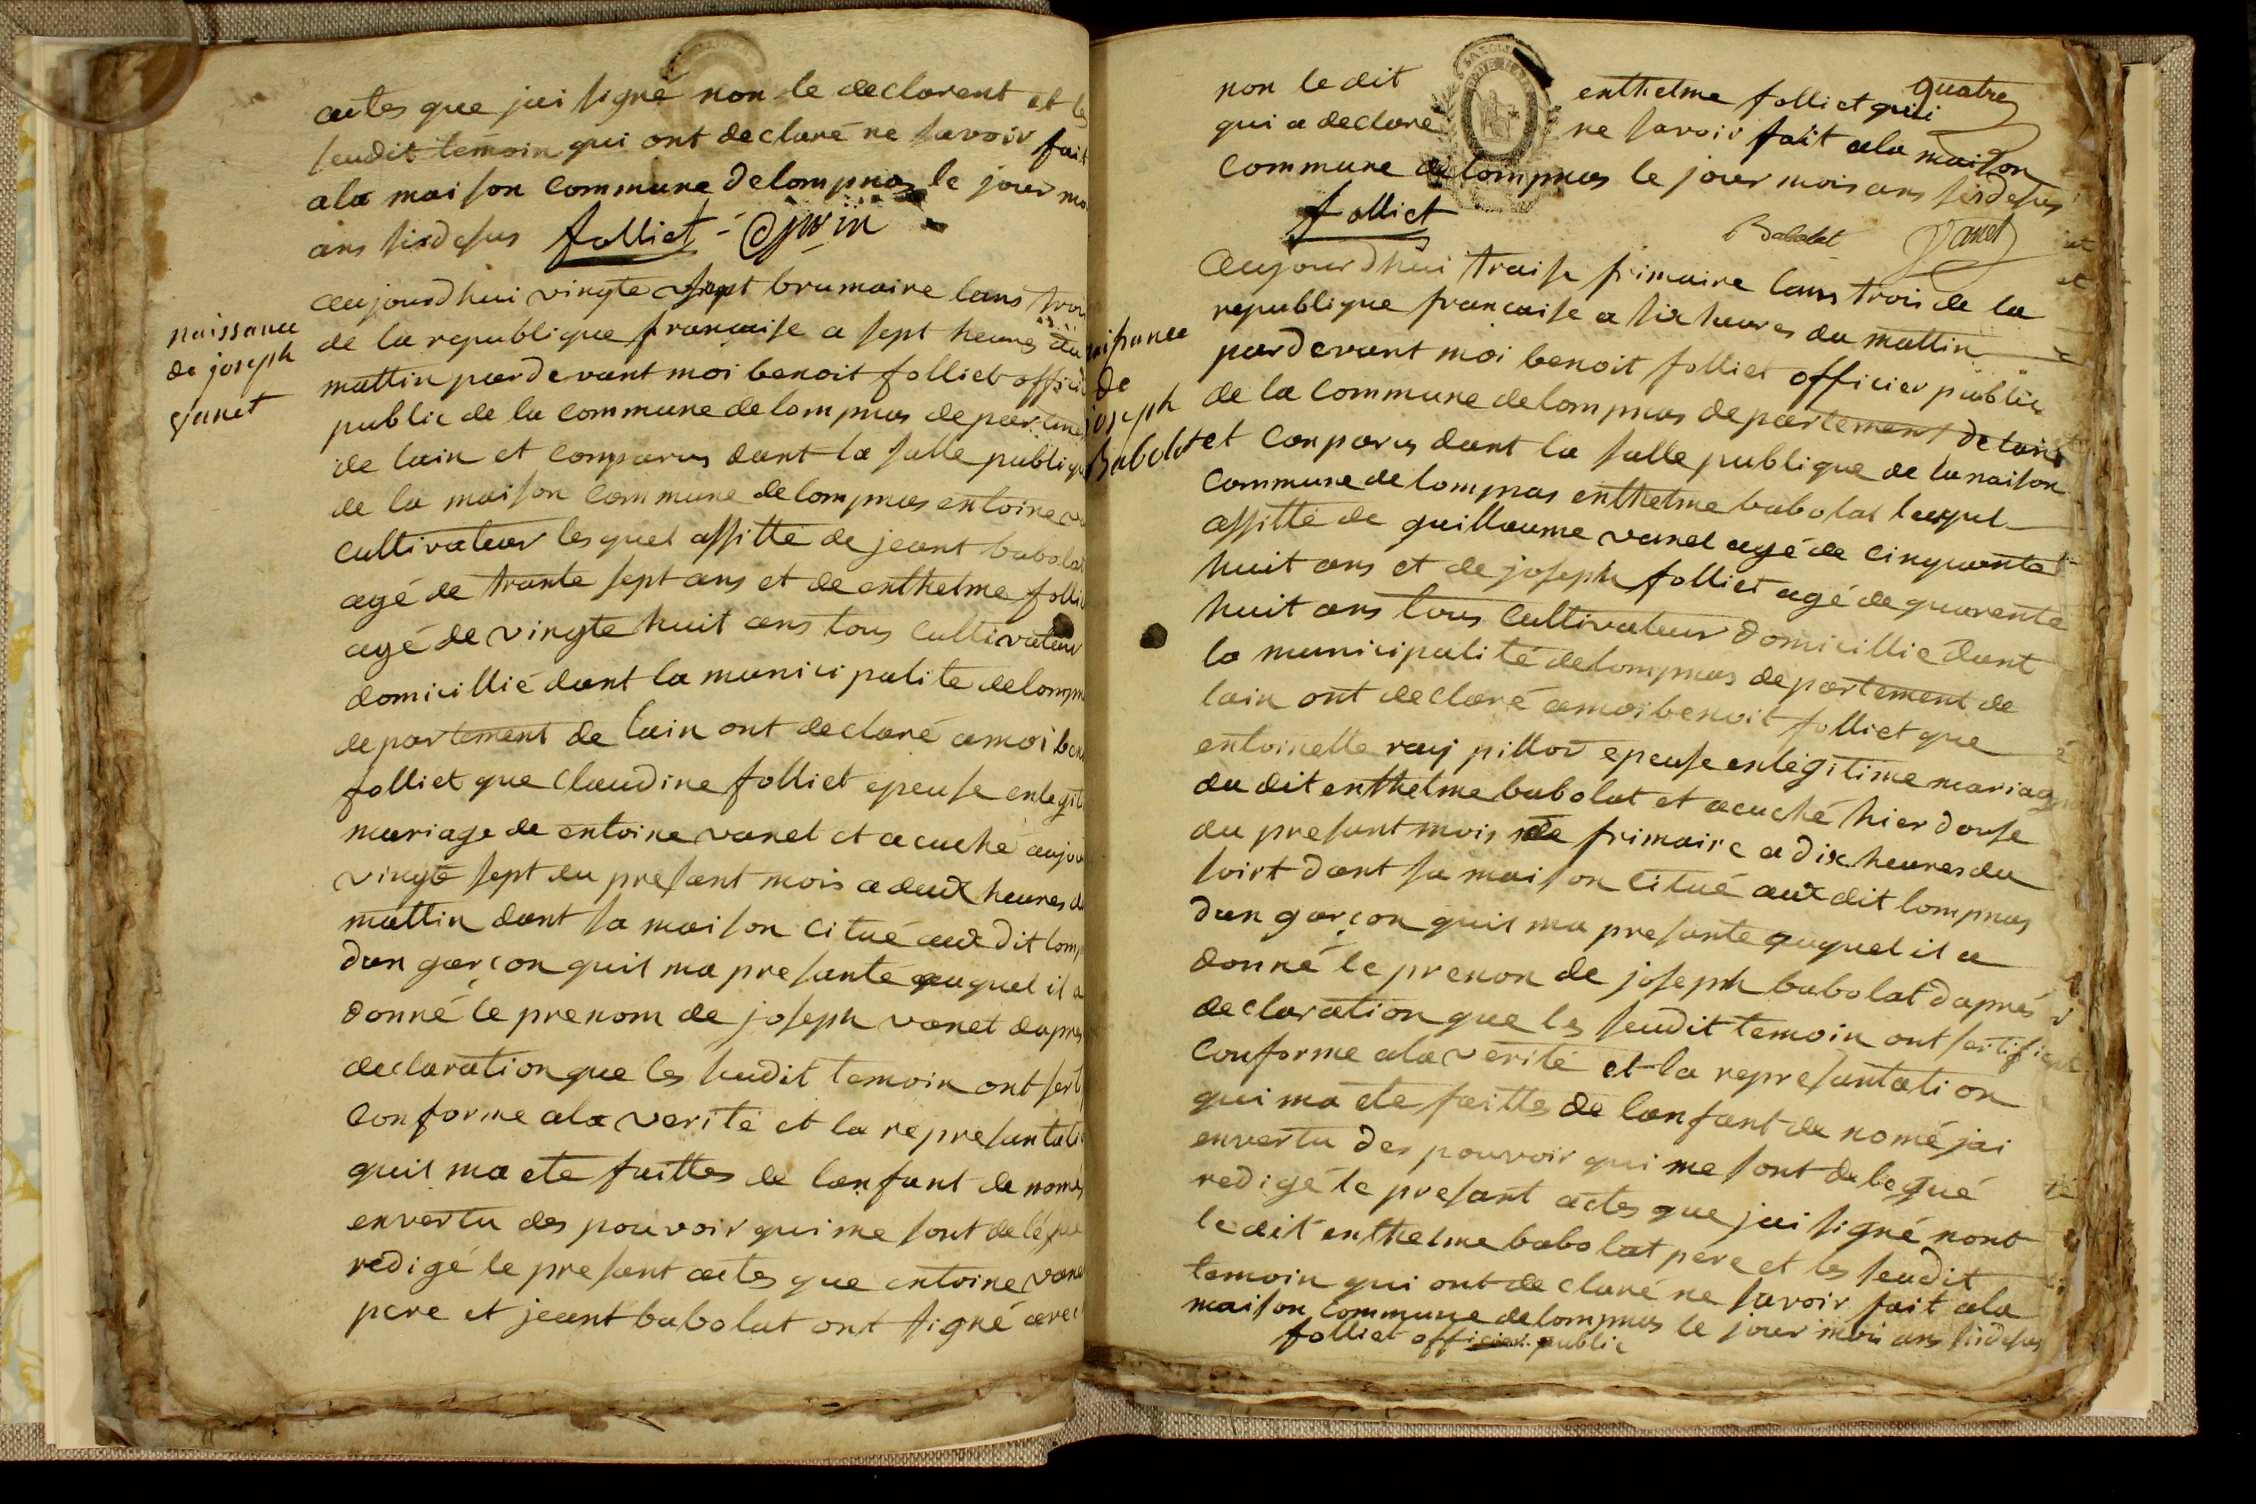 actes que jai signé non le declarent et le
seudit temoin qui ont declaré ne savoir fait
ala maison commune delompnas le jour mo
ans sisdesus folliet
naissance
de joseph
vanet
aujourdhui vingte sept brumaire lans troi
de la republique francaise a sept heures du
mattin pardevant moi benoit folliet offici
public de la commune delompnas departeme
de lain et comparus dant la salle publiqu
de la maison commune delompnas entoine va
cultivateur lesquel assitté de jeant babolat
agé de trante sept ans et de enthelme folli
agé de vingte huit ans tous cultivateur
domicillié dant la municipalité delompn
departement de lain ont declaré amoi ben
folliet que claudine folliet epeuse enlegit
mariage de entoine vanet et acuché aujou
vingte sept du presant mois a deux heures d
mattin dant sa maison citué aux dit lomp
dun garçon quil ma presanté auquel il a
donné le prenom de joseph vanet dapres
declaration que les seudit temoin ont serti
conforme ala verité et la represantati
quil ma ete faittes de lanfant de nomé
envertu des pouvoir qui me sont delégué
redigé le presant actes que entoine vane
pere et jeant babolat ont signé avec
quatre
non le dit enthelme folliet quil
qui a declaré ne savoir fait ala maison
commune delompnas le jour mois ans sisdesus
folliet Babolat Vanet
naisance
de
joseph
Babolat
aujourdhui traise frimaire lans trois de la
republique francaise a six heures du mattin
pardevant moi benoit folliet officier public
de la commune delompnas departement de lain
et comparus dant la salle publique de la maison
commune delompnas enthelme babolat lequel
assitté de guillaume vanet agé de cinquante
huit ans et de joseph folliet agé de quarente
huit ans tous cultivateur domicillié dant
la municipalité delompnas departement de
lain ont declaré amoi benoit folliet que
entoinette ray pillod epeuse enlegitime mariage
du dit enthelme babolat et acuché hier douse
du presant mois de frimaire a dix heures du
soirt dant sa maison citué aux dit lompnas
dun garçon quil ma presanté auquel il a
donné le prenon de joseph babolat daprés
declaration que les seudit temoin ont sertifié
conforme ala verité et la represantation
qui ma ete faittes de lanfant de nomé jai
envertu des pouvoir qui me sont delegué
redigé le presant actes que jai signé nont
le dit enthelme babolat pere et les seudit
temoin qui ont declaré ne savoir fait ala
maison commune delompnas le jour mois ans sisdesus
folliet officier public